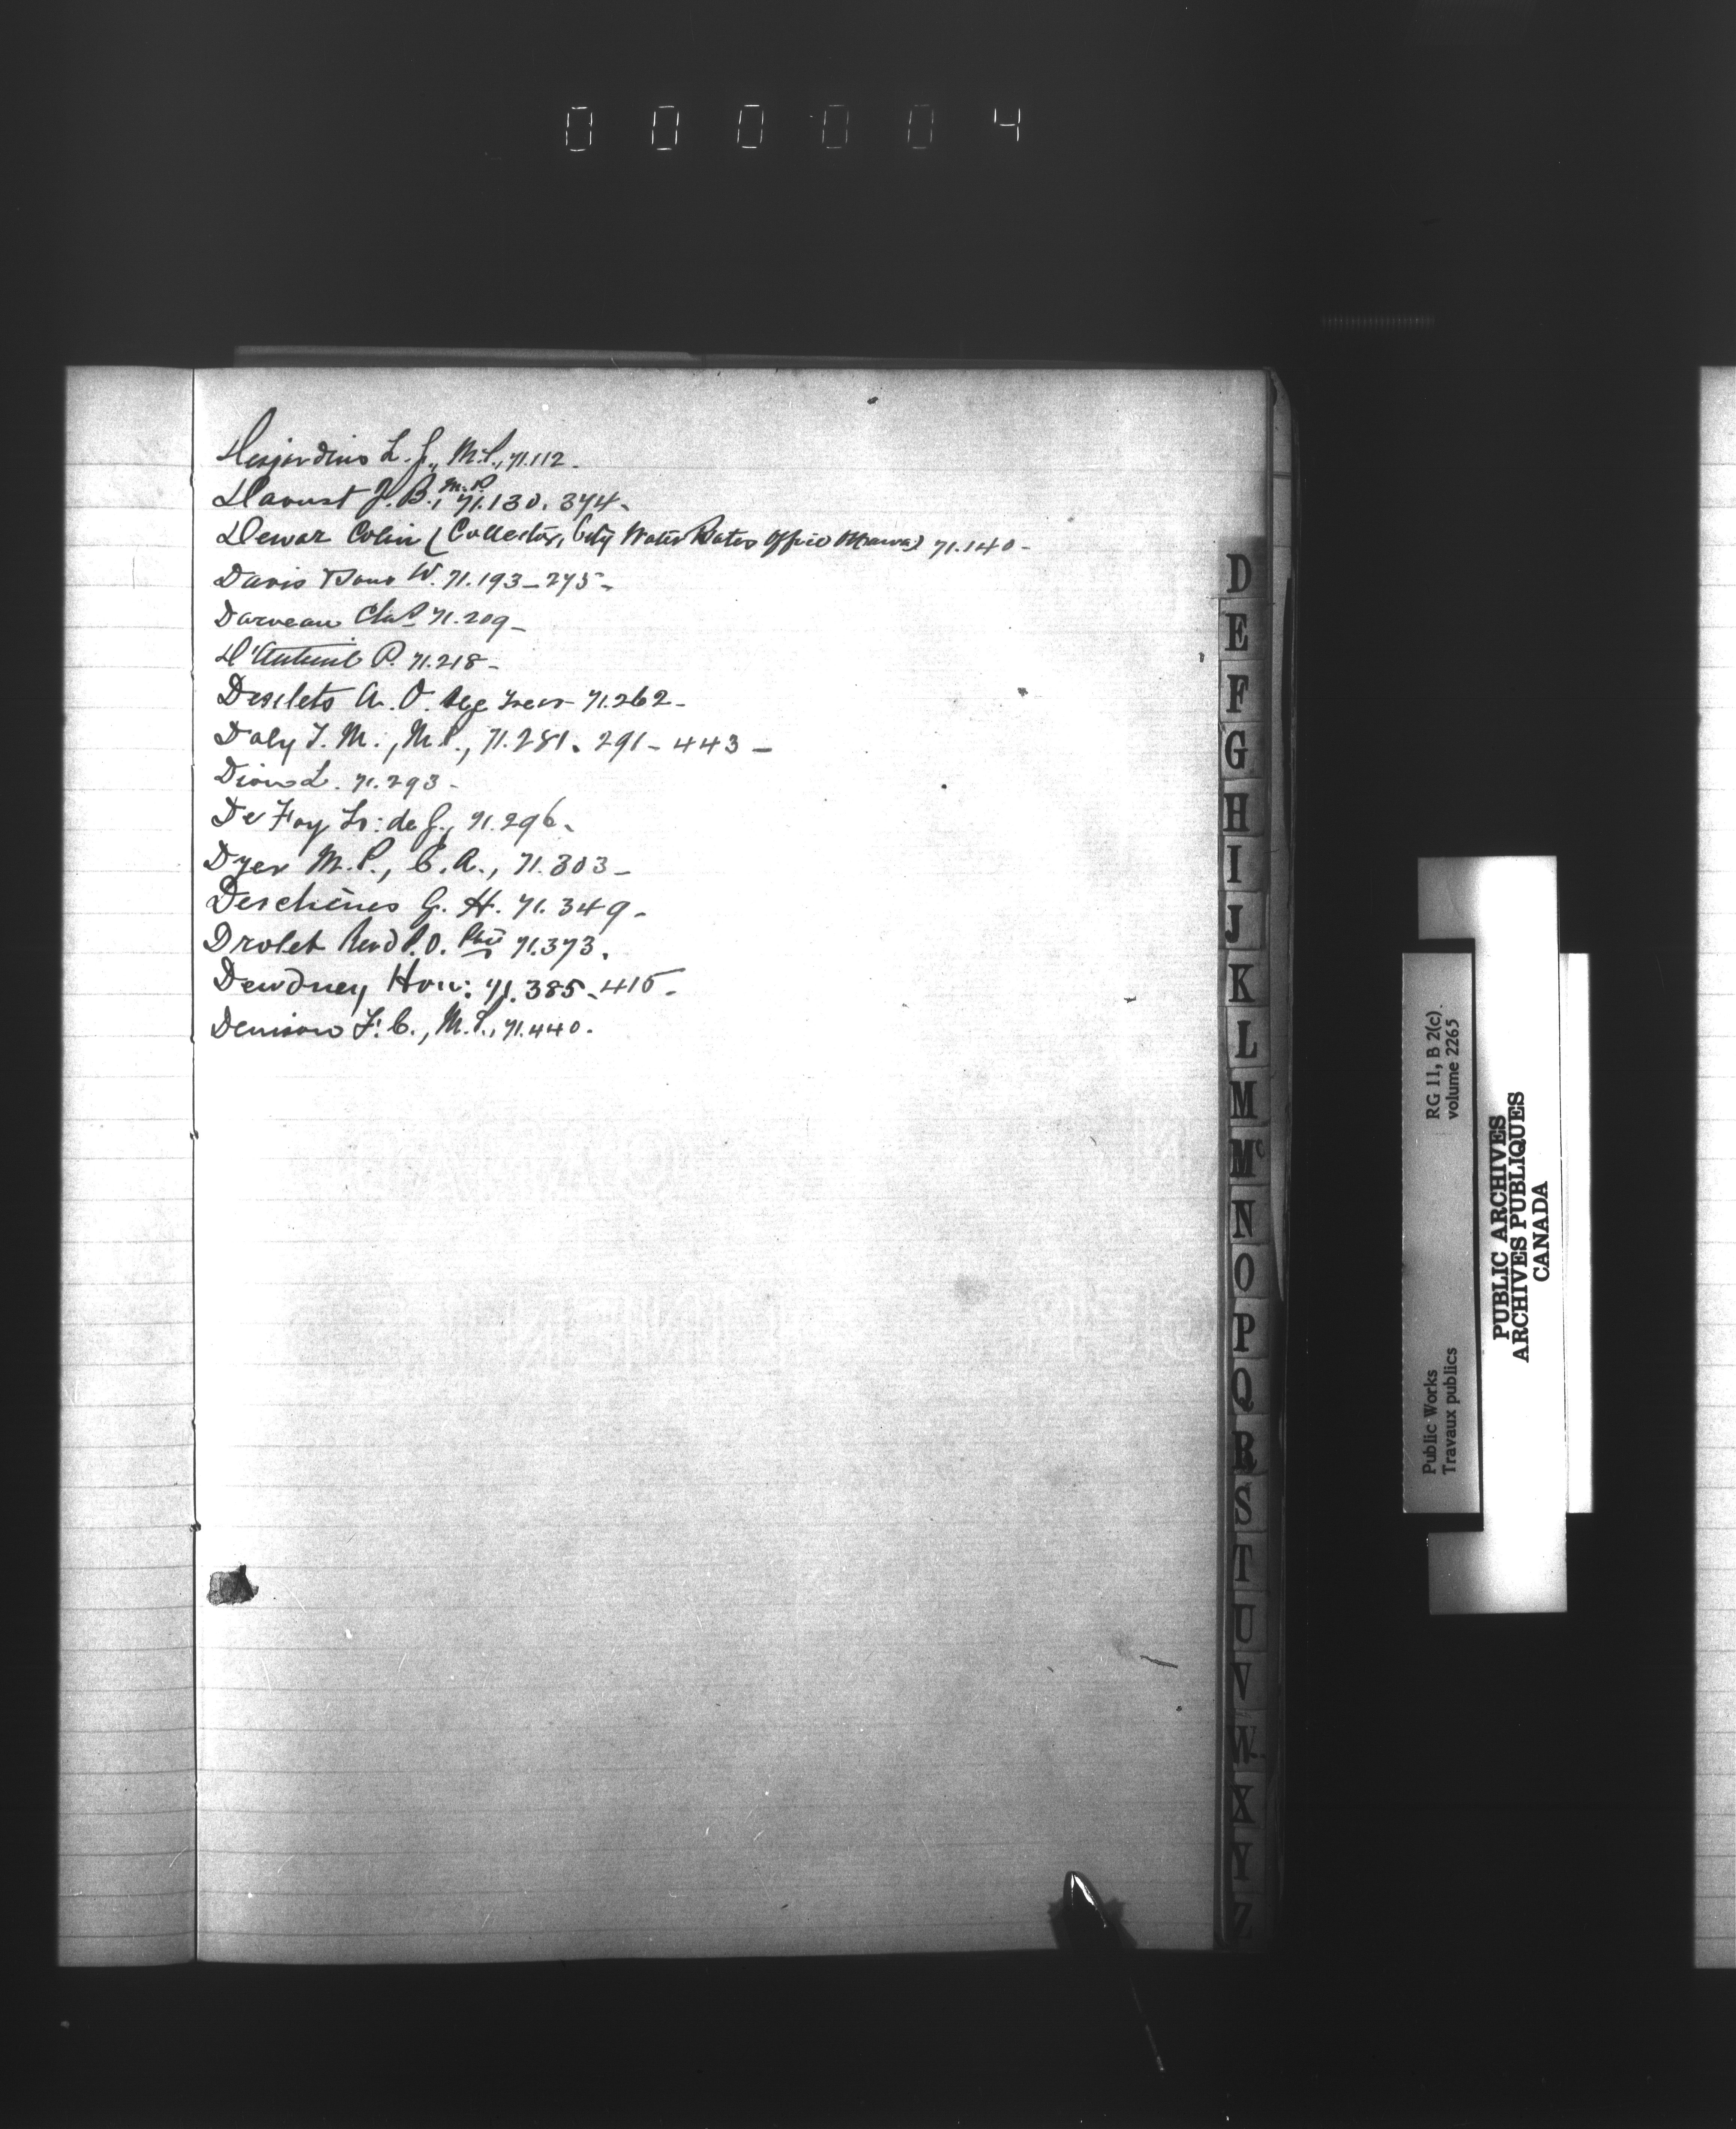 000004
Desjardins L. G., M.P., 71.112.
Daoust J. B., M.P. 71.130. 374.
Dewar Colin (Collector, City Water Rates Office Ottawa) 71.140-
Davis W. 71.193-275-
Darveau Chas 71.209-
D'Auteuil P. 71.218-
Desilets A. O. Sec Treas 71.262-
Daly T. M., M.P., 71.281. 291-443-
Dion L. 71.293-
De Foy Ls: de G., 71.296.
Dyer M.P., C.A., 71.303-
Deschênes G. H. 71.349-
Drolet Revd P.O. Ptre 71.373.
Dewdney Hon: 71.385-415-
Denison F. C., M.P., 71.440.
D
E
F
G
H
I
J
K
L
M
Mc
N
O
P
Q
R
S
T
U
V
W
X
Y
Z
Public Works RG 11, B 2(c)
Travaux publics volume 2265
PUBLIC ARCHIVES
ARCHIVES PUBLIQUES
CANADA